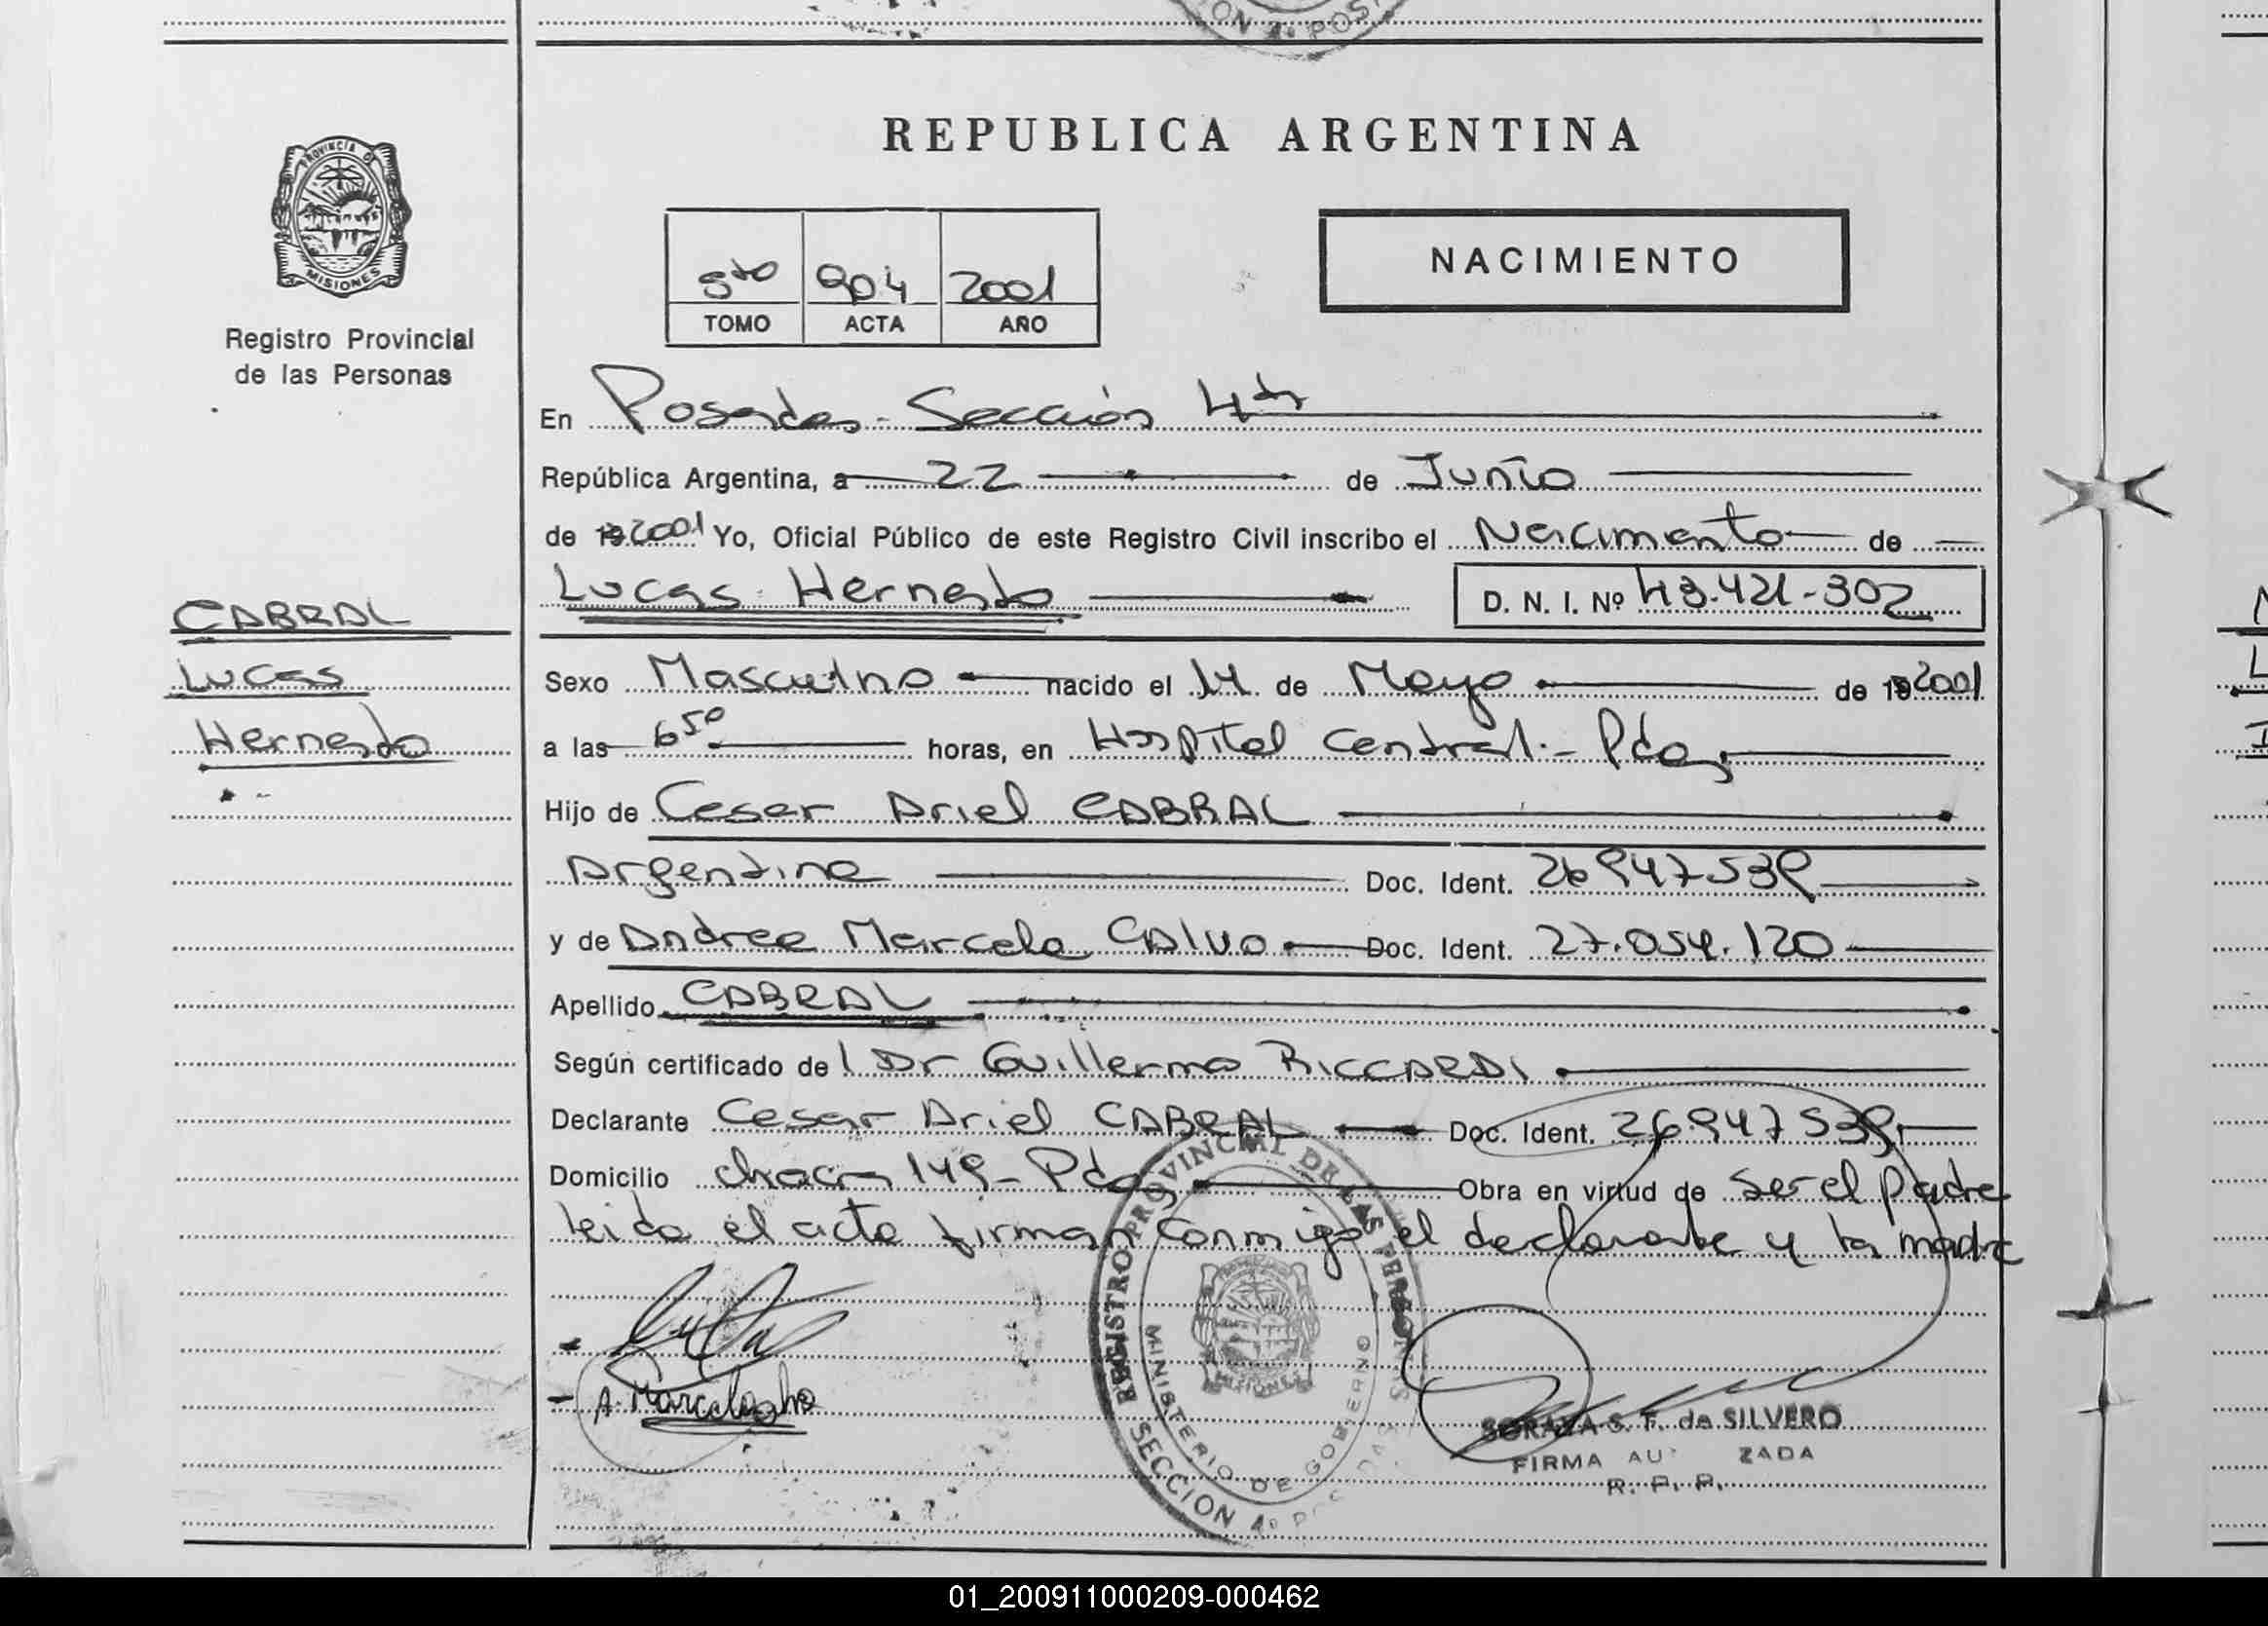 REPUBLICA ARGENTINA
PROVINCIA DE
MISIONES
Registro Provincial
de las Personas
5to 904 2001
TOMO ACTA AÑO
NACIMIENTO
En Posadas - Sección 4ta
República Argentina, a 22 de Junio
de 19 2001 Yo, Oficial Público de este Registro Civil inscribo el Nacimiento de
Lucas Hernesto D. N. I. Nº 43.421-302
CABRAL
Lucas
Hernesto
Sexo Masculino nacido el 14 de Mayo de 19 2001
a las 6 50 horas, en Hospital Central - Pdas
Hijo de Cesar Ariel CABRAL
Argentina Doc. Ident. 26947539
y de Andrea Marcela Calvo Doc. Ident. 27.054.120
Apellido CABRAL
Según certificado de l Dr Guillermo RICCARDI
Declarante Cesar Ariel CABRAL Doc. Ident. 26947539
Domicilio chacra 149 - Pdas Obra en virtud de ser el padre
leida el acta firman conmigo el declarante y la madre
REGISTRO PROVINCIAL DE LAS PERSONAS
MINISTERIO DE GOBIERNO
MISIONES
SECCION 4º
A. Marcela
SORAYA S. F. de SILVERO
FIRMA AU ZADA
R. P. P.
01_200911000209-000462